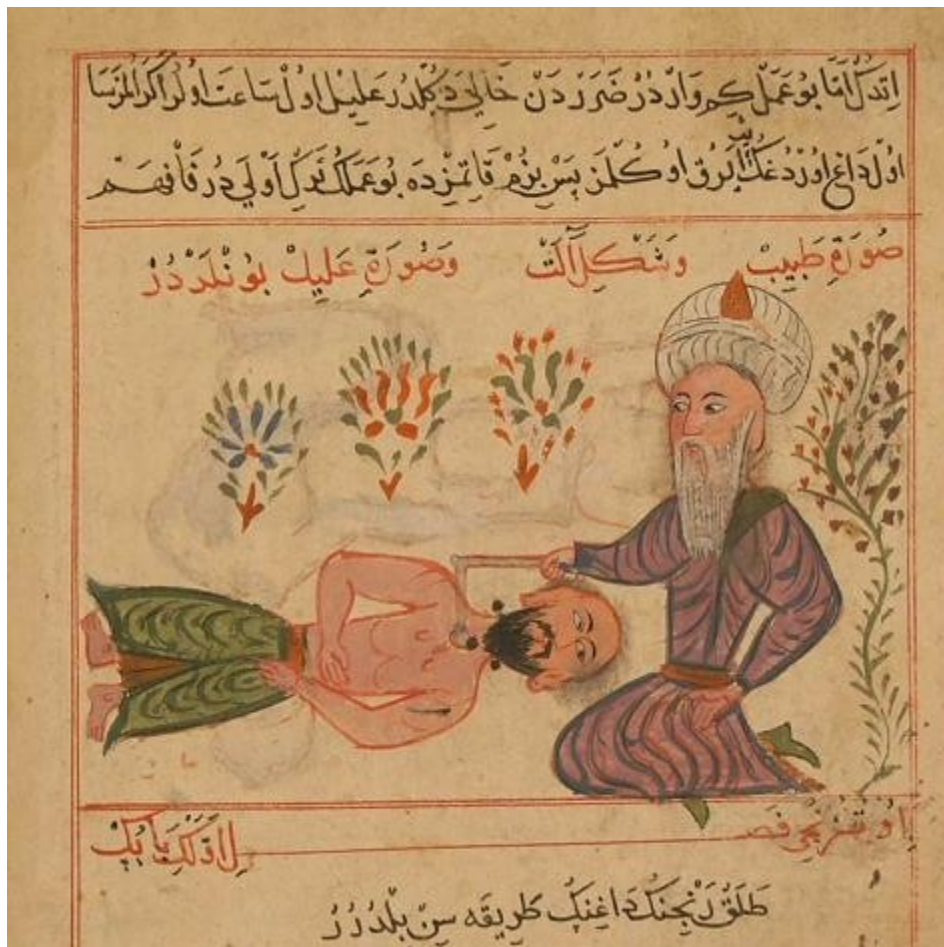 اما بو عمل كم واردر ضرردن خالي دكلدر عليل اول ساعت اولر اكر المزسا
اول داغ اوردغك اوكلمز پس بزم قاتمزده بو عملك تركي اولي در فافهم
صُورَةِ طَبِيبْ وَشَكْلِ آلَتْ وَصُورَةِ عَلِيلْ بُونْلَرْدُرْ
بابك
طلق رنجنك داغنك طريقه سن بلدرر